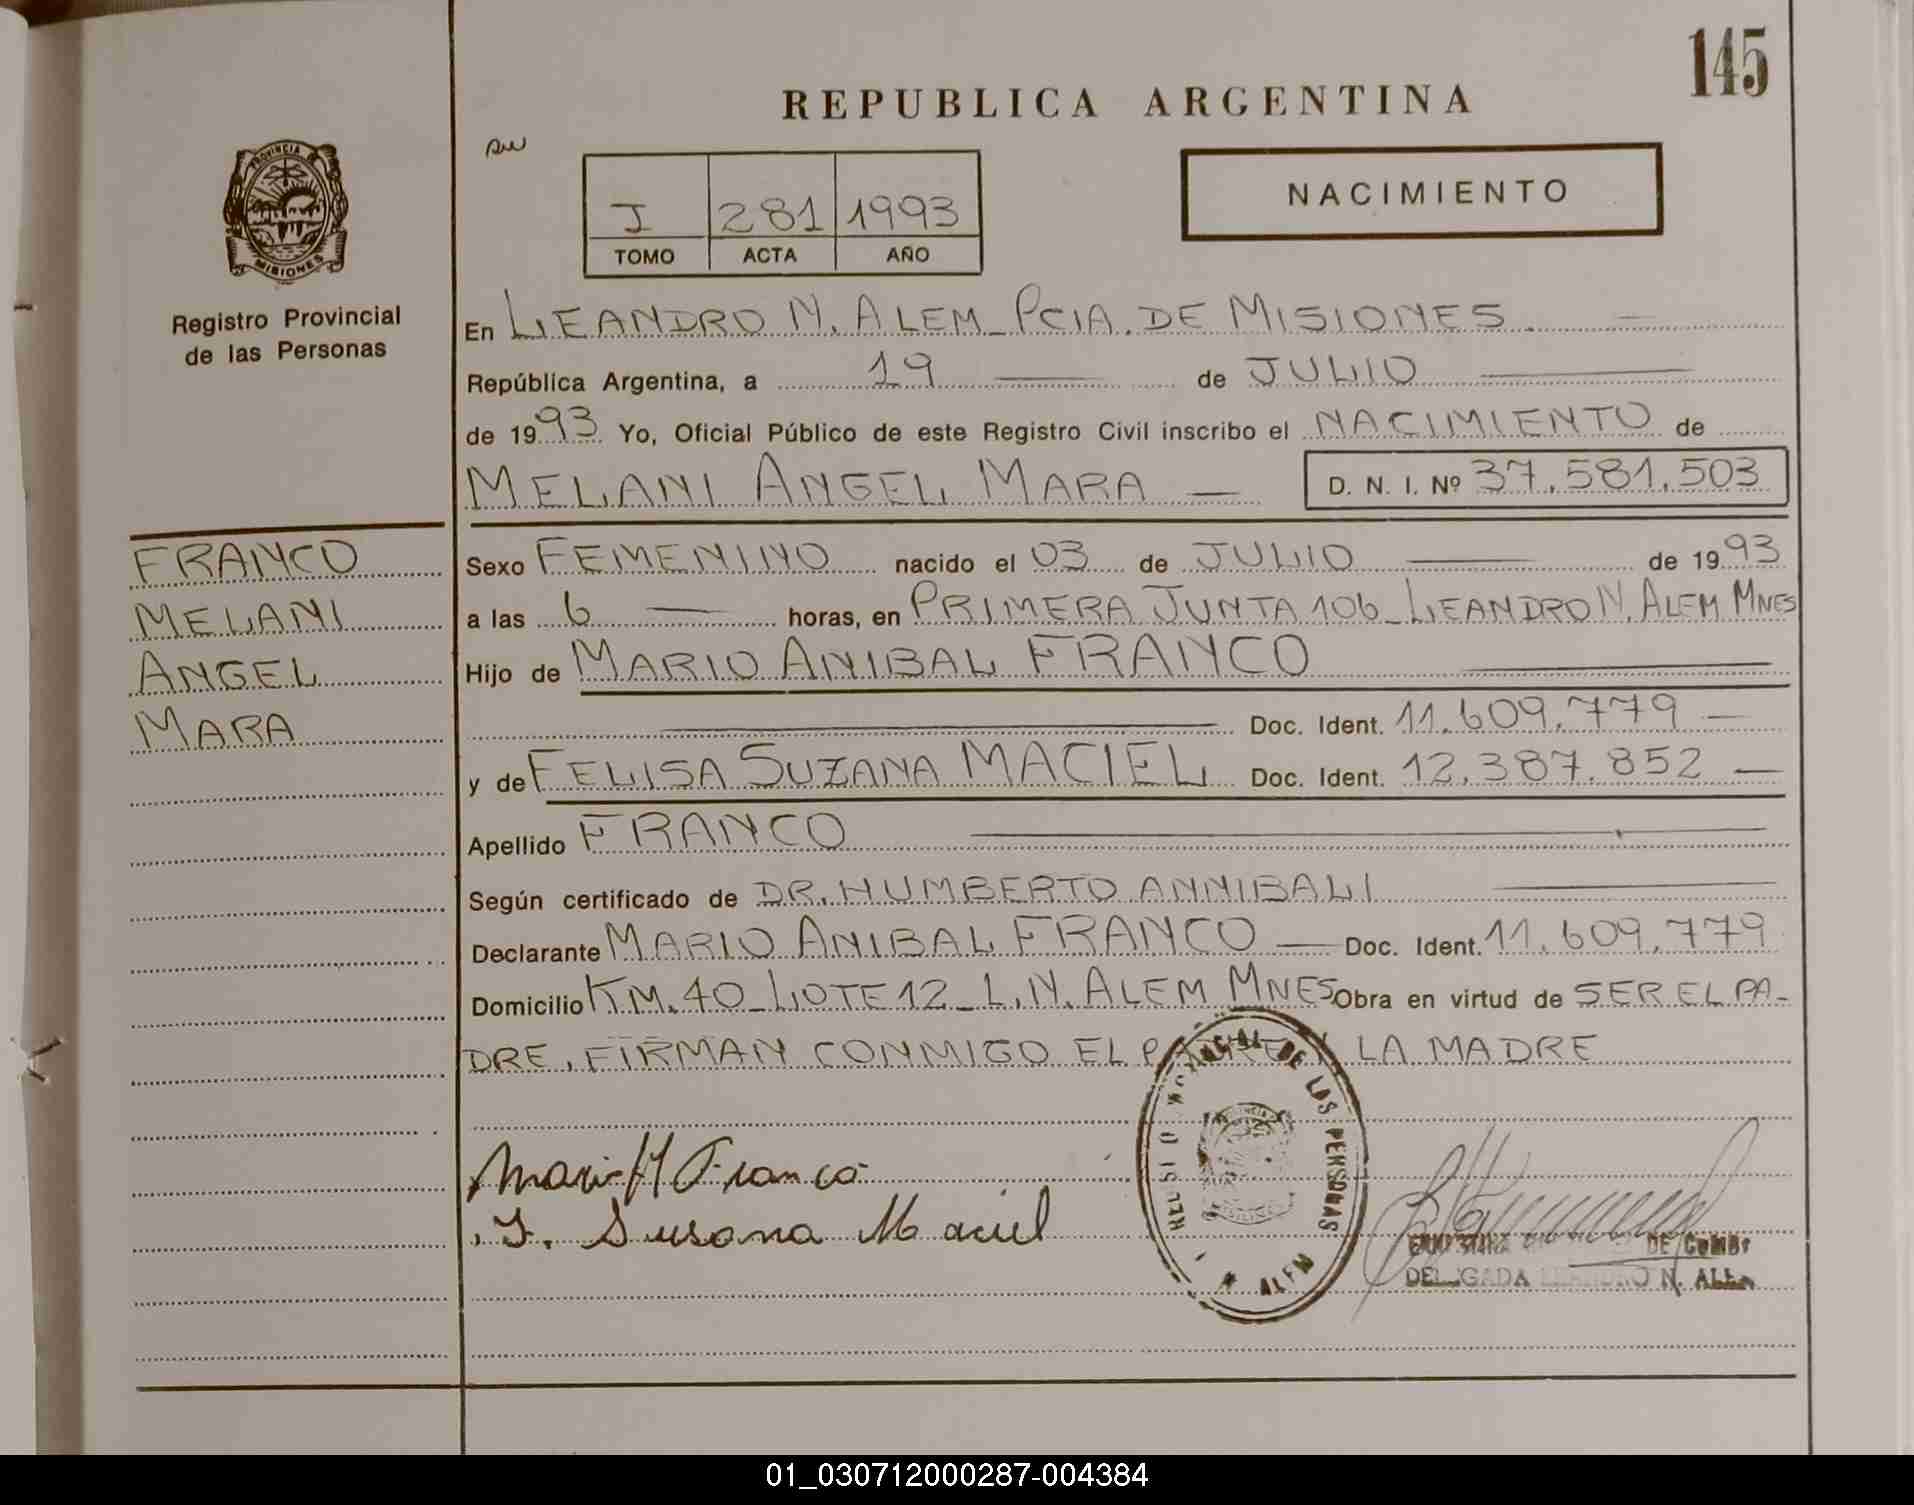 145
REPUBLICA ARGENTINA
PROVINCIA
MISIONES
Registro Provincial
de las Personas
I 281 1993
TOMO ACTA AÑO
NACIMIENTO
En LEANDRO N. ALEM_PCIA. DE MISIONES.
República Argentina, a 19 de JULIO
de 1993 Yo, Oficial Público de este Registro Civil inscribo el NACIMIENTO de
MELANI ANGEL MARA D. N. I. Nº 37.581.503
FRANCO
MELANI
ANGEL
MARA
Sexo FEMENINO nacido el 03 de JULIO de 1993
a las 6 horas, en PRIMERA JUNTA 106_LEANDRO N. ALEM MNES
Hijo de MARIO ANIBAL FRANCO
Doc. Ident. 11.609.779
y de FELISA SUZANA MACIEL Doc. Ident. 12.387.852
Apellido FRANCO
Según certificado de DR. HUMBERTO ANNIBALI
Declarante MARIO ANIBAL FRANCO Doc. Ident. 11.609.779
Domicilio KM. 40_LOTE 12_L.N. ALEM MNES Obra en virtud de SER EL PA-
DRE, FIRMAN CONMIGO EL PADRE Y LA MADRE
Mario A Franco
F. Susana Maciel
DE LAS PERSONAS
ALEM
DELEGADA LEANDRO N. ALEM
01_030712000287-004384